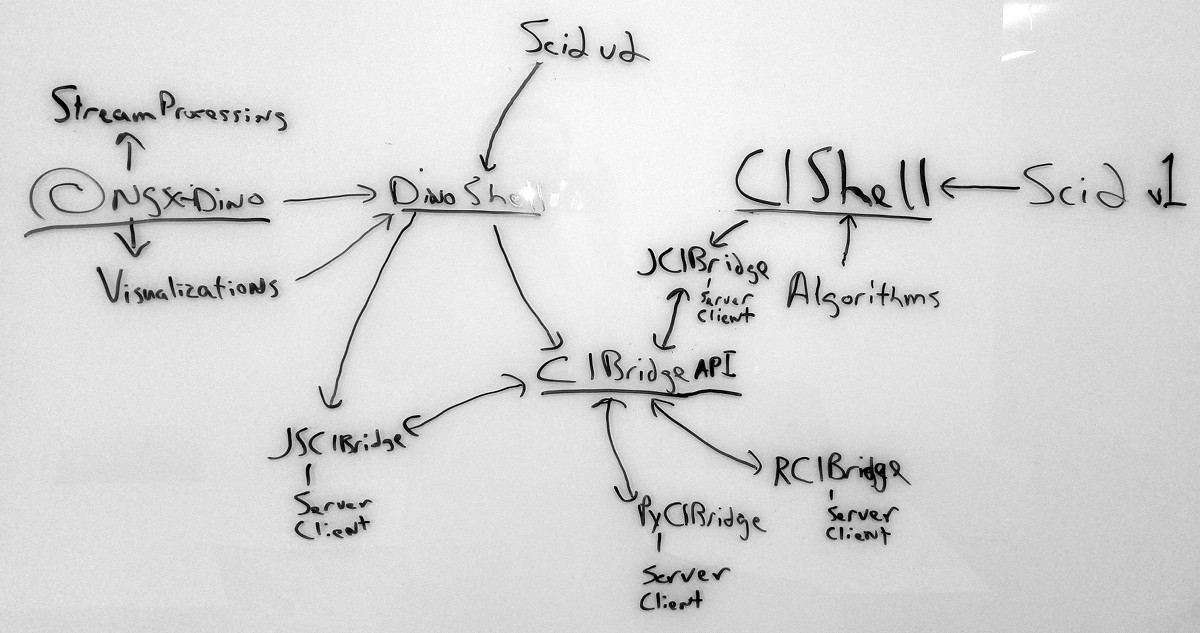 Sci2 v2
StreamProcessing
© NGX-Dino
DinoShell
CIShell
Sci2 v1
Visualizations
JCIBridge
Server
Client
Algorithms
CIBridge API
JSCIBridge
Server
Client
RCIBridge
Server
Client
PyCIBridge
Server
Client